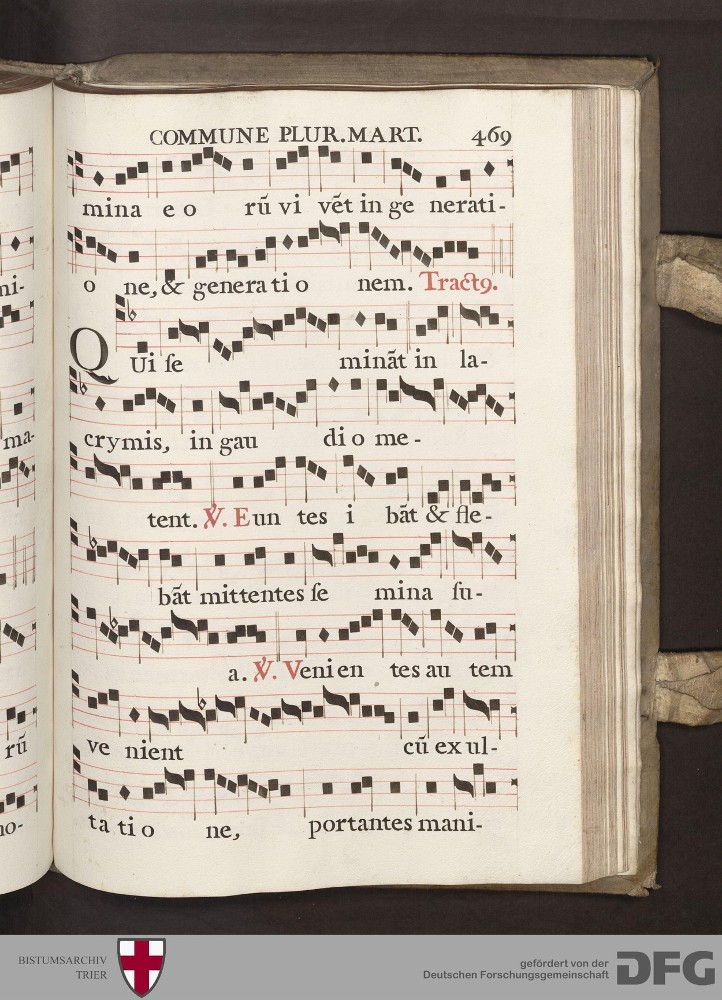 COMMUNE PLUR.MART. 469
mina e o rū vi vēt in ge nerati-
o ne, & genera ti o nem. Tract9.
QUi se mināt in la-
crymis, in gau di o me-
tent. ℣. Eun tes i bāt & fle-
bāt mittentes se mina su-
a. ℣. Venien tes au tem
ve nient cū ex ul-
ta ti o ne, portantes mani-
ni-
ma-
rū
no-
BISTUMSARCHIV
TRIER
gefördert von der
Deutschen Forschungsgemeinschaft
DFG